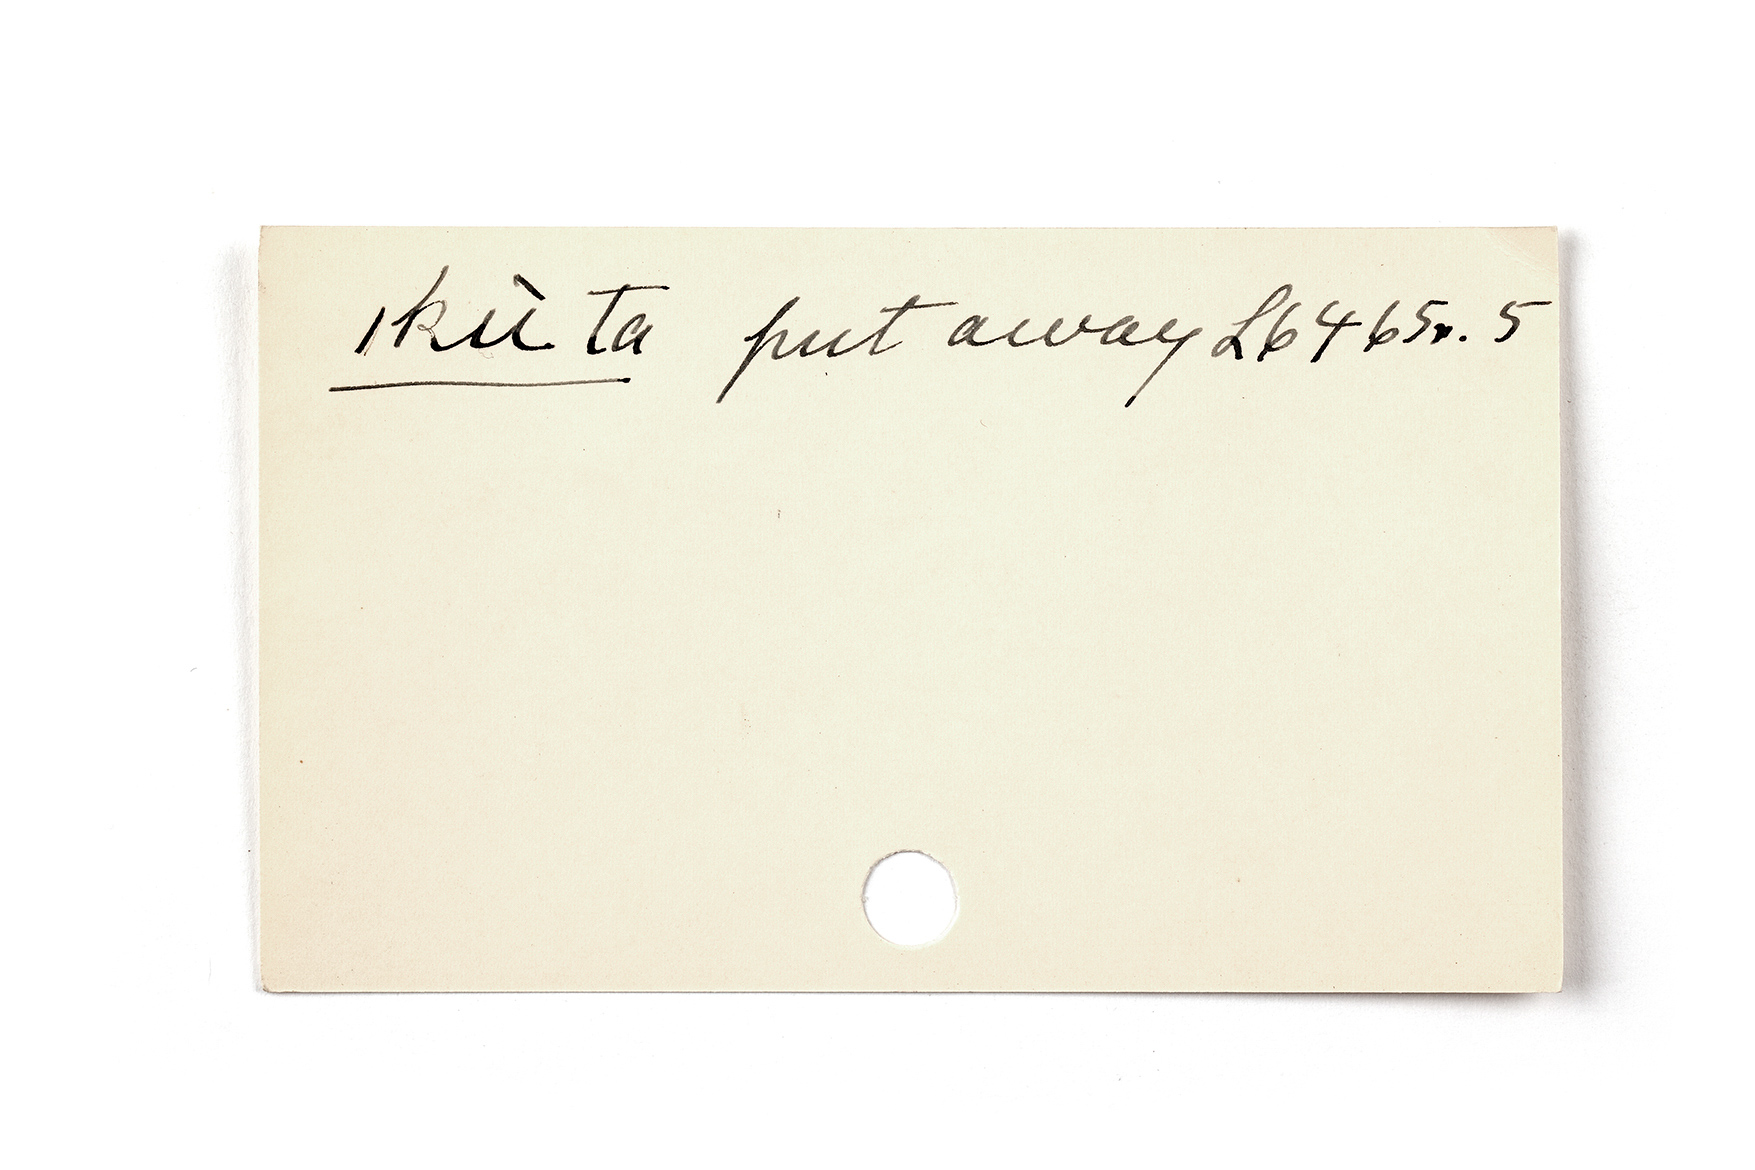 ikù ta put away L6465r. 5